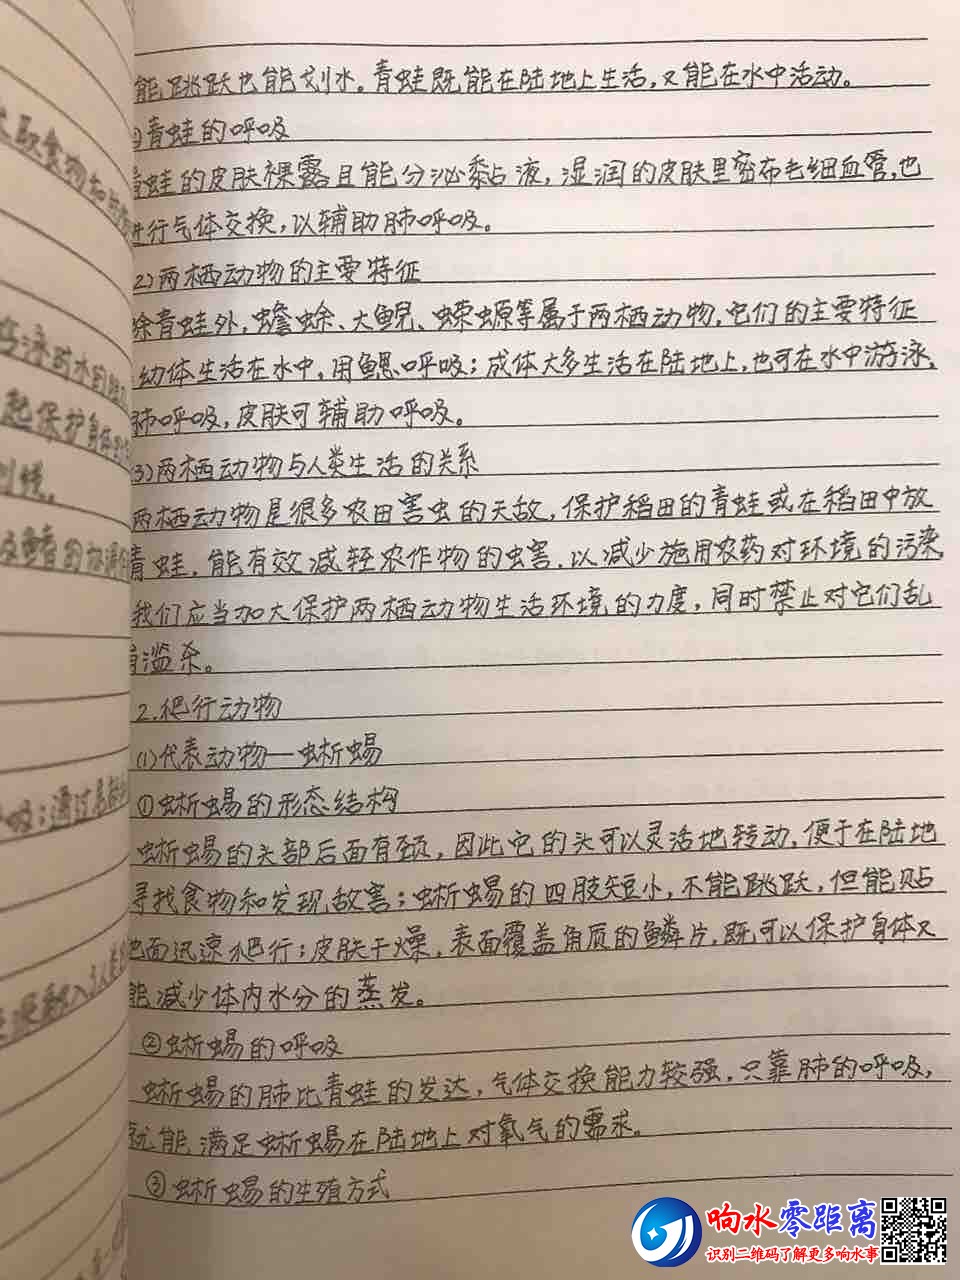 能跳跃也能划水。青蛙既能在陆地上生活,又能在水中活动。
青蛙的呼吸
青蛙的皮肤裸露且能分泌黏液,湿润的皮肤里密布毛细血管,也
进行气体交换,以辅助肺呼吸。
(2)两栖动物的主要特征
除青蛙外,蟾蜍、大鲵、蝾螈等属于两栖动物,它们的主要特征
幼体生活在水中,用鳃呼吸;成体大多生活在陆地上,也可在水中游泳,
肺呼吸,皮肤可辅助呼吸。
(3)两栖动物与人类生活的关系
两栖动物是很多农田害虫的天敌,保护稻田的青蛙或在稻田中放
青蛙,能有效减轻农作物的虫害,以减少施用农药对环境的污染
我们应当加大保护两栖动物生活环境的力度,同时禁止对它们乱
滥杀。
2.爬行动物
(1)代表动物—蜥蜴
①蜥蜴的形态结构
蜥蜴的头部后面有颈,因此它的头可以灵活地转动,便于在陆地
寻找食物和发现敌害;蜥蜴的四肢短小,不能跳跃,但能贴
地面迅速爬行;皮肤干燥,表面覆盖角质的鳞片,既可以保护身体又
能减少体内水分的蒸发。
②蜥蜴的呼吸
蜥蜴的肺比青蛙的发达,气体交换能力较强,只靠肺的呼吸,
就能满足蜥蜴在陆地上对氧气的需求。
③蜥蜴的生殖方式
响水零距离
识别二维码了解更多响水事